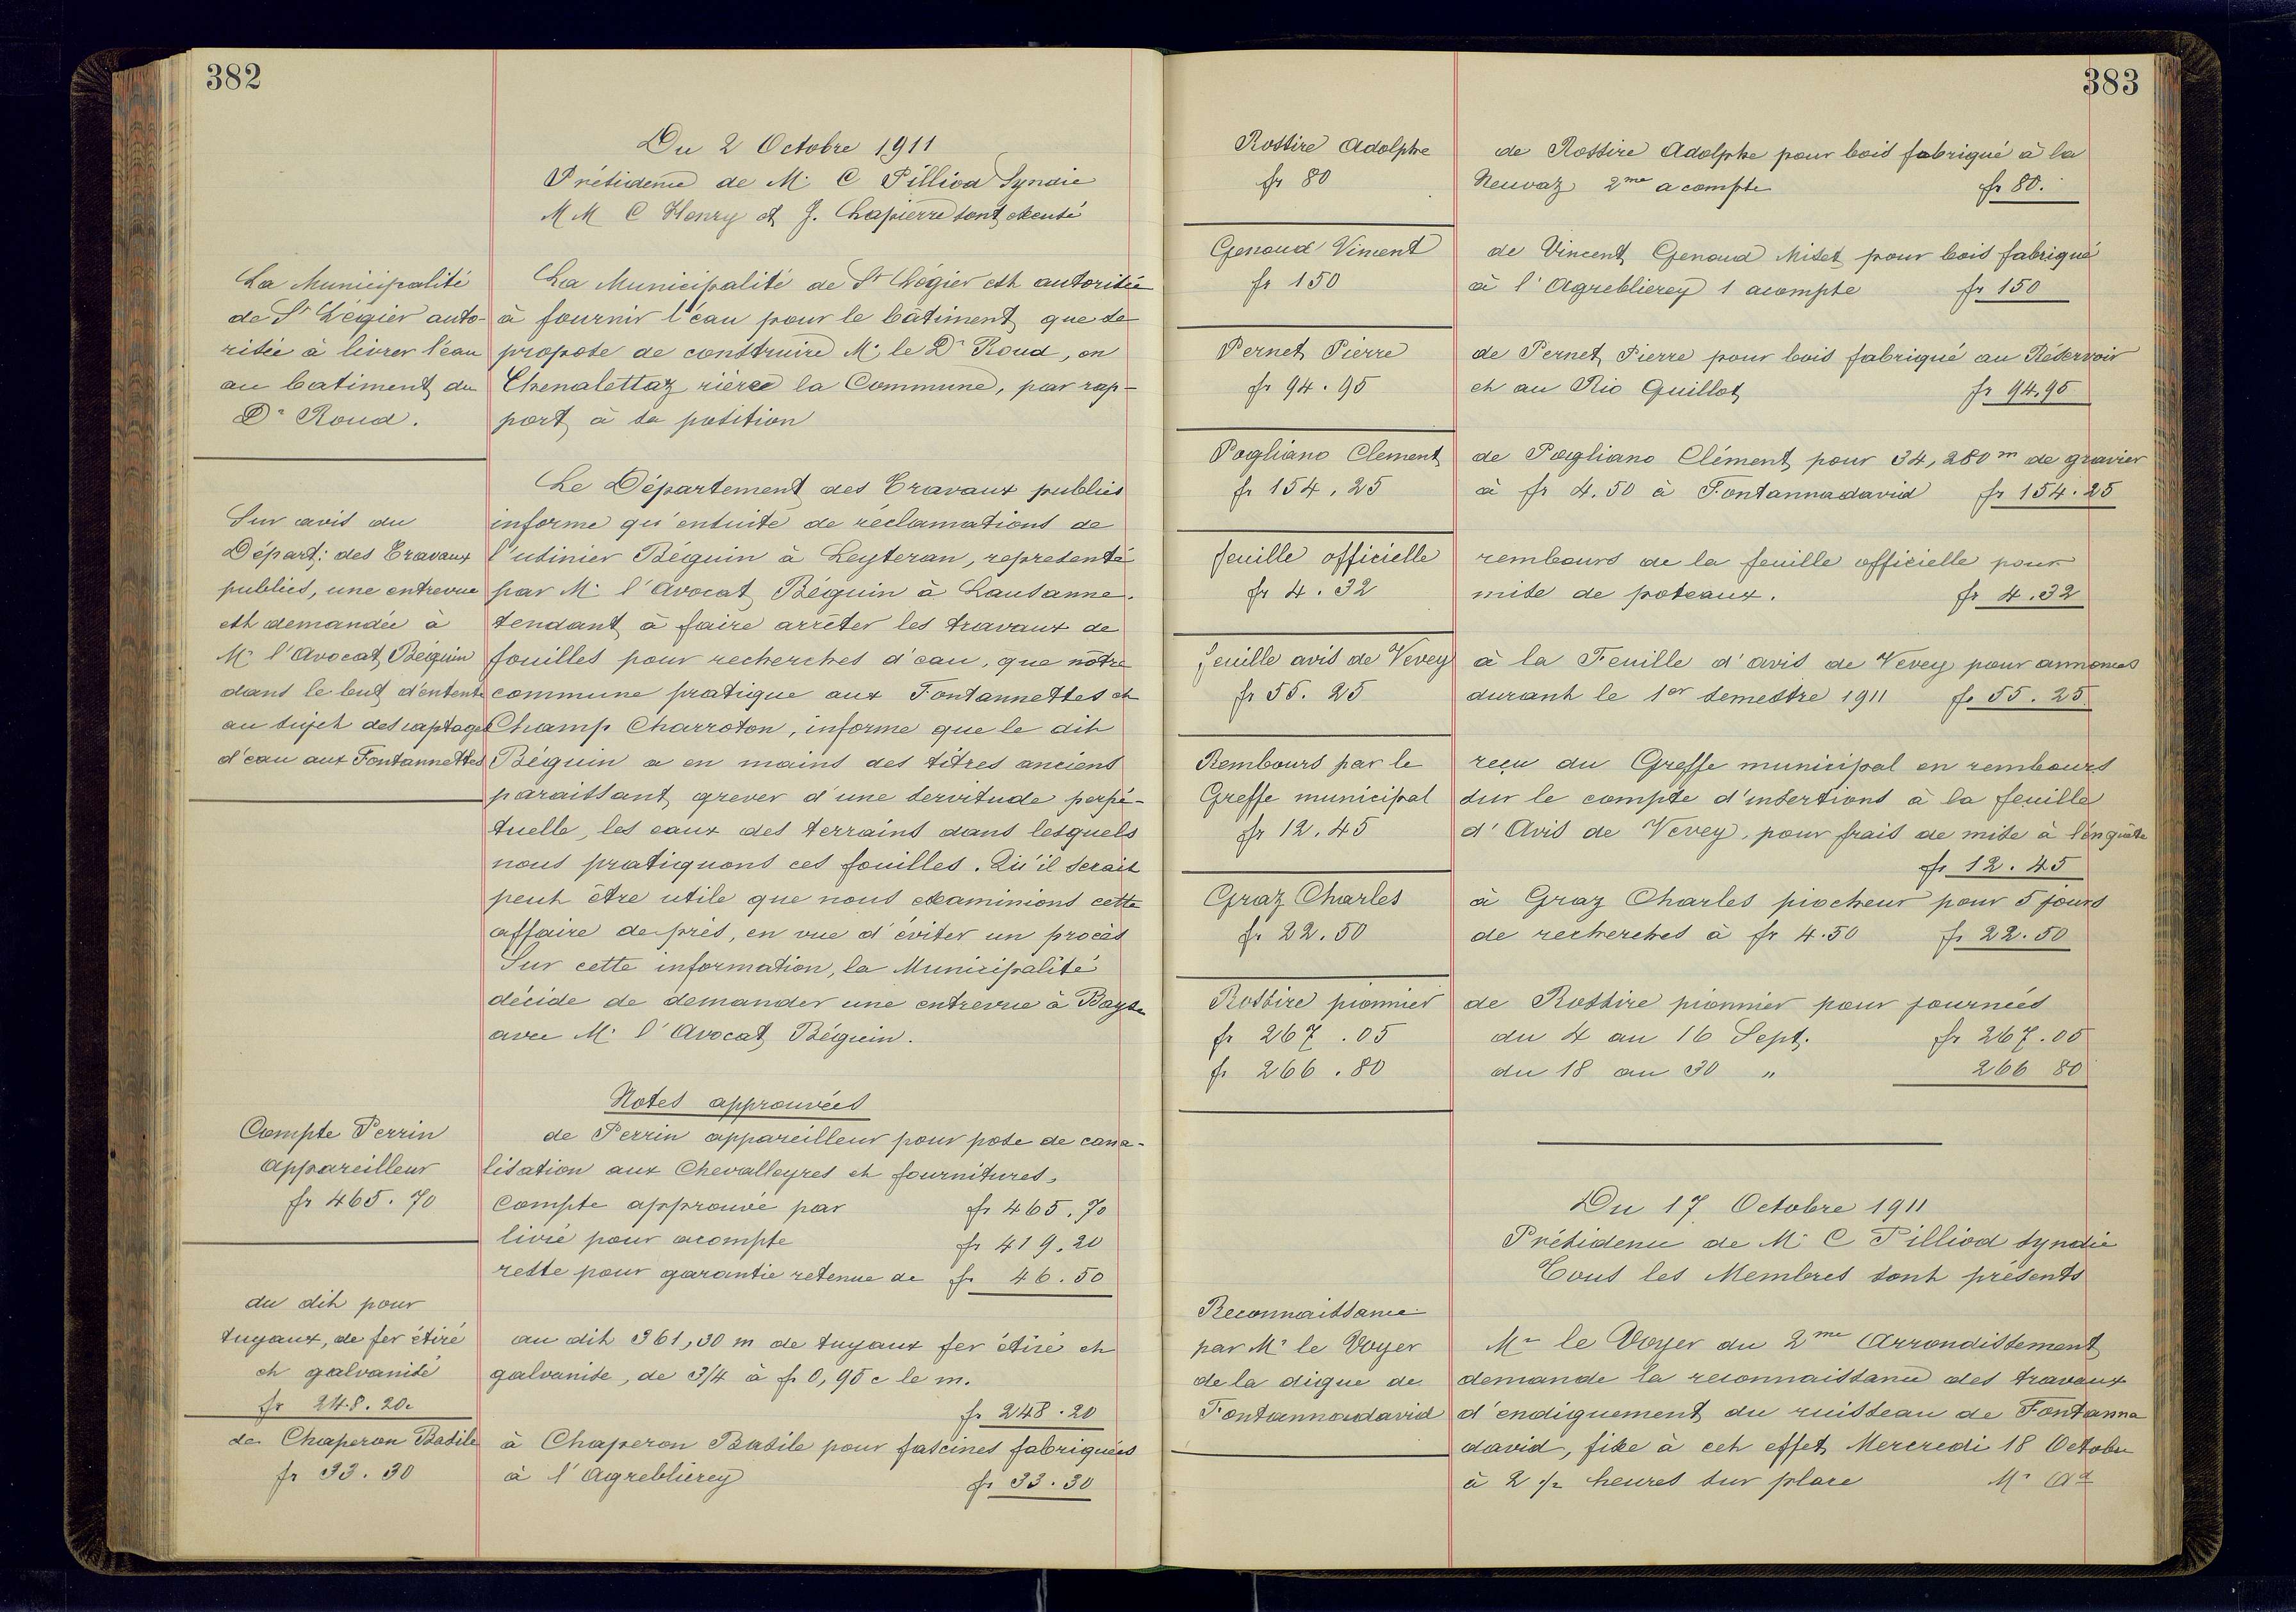 382
Du 2 Octobre 1911
Présidence de M. C Pilliod Syndic
M M C Henry et J. Chapierre sont excusé
La Municipalité
de St Légier auto-
risée à livrer l'eau
au batiment du
Dr Roud.
La Municipalité de St Légier est autorisée
à fournir l'eau pour le bâtiment que se
propose de construire M. le Dr Roud, en
Chenalettaz rière la Commune, par rap-
port à sa position
Sur avis du
Départ: des Travaux
publics, une entrevue
est demandée à
Mr l'Avocat Béguin
dans le but d'entente
au sujet des captages
d'eau aux Fontannettes
Le Département des Travaux publics
informe qu'ensuite de réclamations de
l'usinier Béguin à Leyteran, représenté
par M. l'Avocat Béguin à Lausanne.
tendant à faire arrêter les travaux de
fouilles pour recherches d'eau, que nôtre
commune pratique aux Fontannettes et
Champ Charroton, informe que le dit
Béguin a en mains des titres anciens
paraissant grever d'une servitude perpé-
tuelle, les eaux des terrains dans lesquels
nous pratiquons ces fouilles. Qu'il serait
peut être utile que nous examinions cette
affaire de près, en vue d'éviter un procès
Sur cette information, la Municipalité
décide de demander une entrevue à Bayse
avec M. l'Avocat Béguin.
Notes approuvées
Compte Perrin
Appareilleur
fr 465.70
de Perrin appareilleur pour pose de cana-
lisation aux Chevalleyres et fournitures.
Compte approuvé par fr 465.70
livré pour acompte fr 419.20
reste pour garantie retenue de fr 46.50
du dit pour
tuyaux, de fer étiré
et galvanisé
fr 248.20.
au dit 361,30 m de tuyaux fer étiré et
galvanise, de 3/4 à fr 0,95 c le m.
fr 248.20
de Chaperon Basile
fr 33.30
à Chaperon Basile pour fascines fabriquées
à l'Agreblierey fr 33.30
383
Rossire Adolphe
fr 80
de Rossire Adolphe pour bois fabriqué à la
Neuvaz 2me acompte fr 80.
Genoud Vincent
fr 150
de Vincent Genoud Miset pour bois fabriqué
à l'Agreblierey 1 acompte fr 150
Pernet Pierre
fr 94.95
de Pernet Pierre pour bois fabriqué au Réservoir
et au Rio Guillot fr 94.95
Pogliano Clement
fr 154.25
de Pogliano Clément pour 34,280 m de gravier
à fr 4.50 à Fontannadavid fr 154.25
feuille officielle
fr 4.32
rembours de la feuille officielle pour
mise de poteaux. fr 4.32
feuille avis de Vevey
fr 55.25
à la Feuille d'avis de Vevey pour annonces
durant le 1er semestre 1911 fr 55.25
Rembours par le
Greffe municipal
fr 12.45
reçu du Greffe municipal en rembours
sur le compte d'insertions à la feuille
d'Avis de Vevey, pour frais de mise à l'enquête
fr 12.45
Graz Charles
fr 22.50
à Graz Charles piocheur pour 5 jours
de recherches à fr 4.50 fr 22.50
Rossire pionnier
fr 267.05
fr 266.80
de Rossire pionnier pour journées
du 4 au 16 Sept. fr 267.05
du 18 au 30 " 266 80
Du 17 Octobre 1911
Présidence de M. C Pilliod syndic
Tous les Membres sont présents
Reconnaissance
par Mr le Voyer
de la digue de
Fontannadavid
Mr le Voyer du 2me Arrondissement
demande la reconnaissance des travaux
d'endiguement du ruisseau de Fontanna
david, fixe à cet effet Mercredi 18 Octobre
à 2 1/2 heures sur place Mr Ad